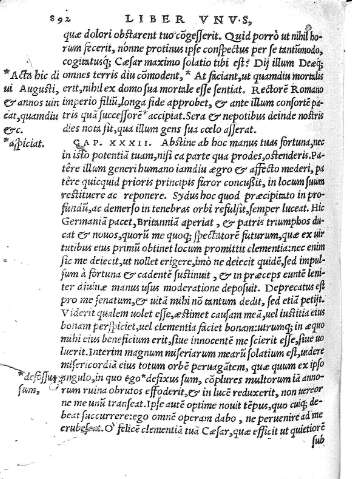 892 LIBER VNVS,
quæ dolori obstarent tuo cõgesserit. Quid porrò ut nihil horum
fecerit, nonne protinus ipse conspectus per se tantũmodo,
cogitatusq; Cæsar maximo solatio tibi est? Dij illum Deæq;
*Acta hic di
omnes terris diu cõmodent, * At faciant, ut quamdiu mortalis
ui Augusti,
erit, nihil ex domo sua mortale esse sentiat. Rectorẽ Romano
& annos uin
imperio filiũ, longa fide approbet, & ante illum consortẽ pa-
cat, quamdiu
tris quã successorẽ accipiat. Sera & nepotibus deinde nostris
&c.
dies nota sit, qua illum gens sua cœlo asserat.
*aspiciat.
CAP. XXXII. Abstine ab hoc manus tuas fortuna, nec
in isto potentiã tuam, nisi ea parte qua prodes, ostenderis. Pa-
tere illum generi humano iamdiu ægro & affecto mederi, pa
tere quicquid prioris principis furor concussit, in locum suum
restituere ac reponere. Sydus hoc quod præcipitato in pro-
fundũ, ac demerso in tenebras orbi refulsit, semper luceat. Hic
Germaniã pacet, Britanniã aperiat, & patrios triumphos du
cat & nouos, quorũ me quoq; spectatorẽ futurum, quæ ex uir
tutibus eius primũ obtinet locum promittit clementia: nec enim
sic me deiecit, ut nollet erigere, imò ne deiecit quidẽ, sed impul
sum à fortuna & cadentẽ sustinuit, & in præceps euntẽ leni-
ter diuinæ manus usus moderatione deposuit. Deprecatus est
pro me senatum, & uitã mihi nõ tantum dedit, sed etiã petijt.
Viderit qualem uolet esse, æstimet causam meã, uel iustitia eius
bonam perspiciet, uel clementia faciet bonam: utrumq; in æquo
mihi eius beneficium erit, siue innocentẽ me scierit esse, siue uo
luerit. Interim magnum miseriarum mearũ solatium est, uidere
misericordiã eius totum orbẽ peruagãtem, quæ quum ex ipso
*defossus
angulo, in quo ego *defixus sum, cõplures multorum iã anno-
sum,
rum ruina obrutos effoderit, & in lucẽ reduxerit, non uereor
ne me unũ transeat. Ipse autẽ optime nouit tẽpus, quo cuiq; de-
beat succurrere: ego omnẽ operam dabo, ne peruenire ad me
erubescat. O' felicẽ clementiã tuã Cæsar, quæ efficit ut quietiorẽ
sub